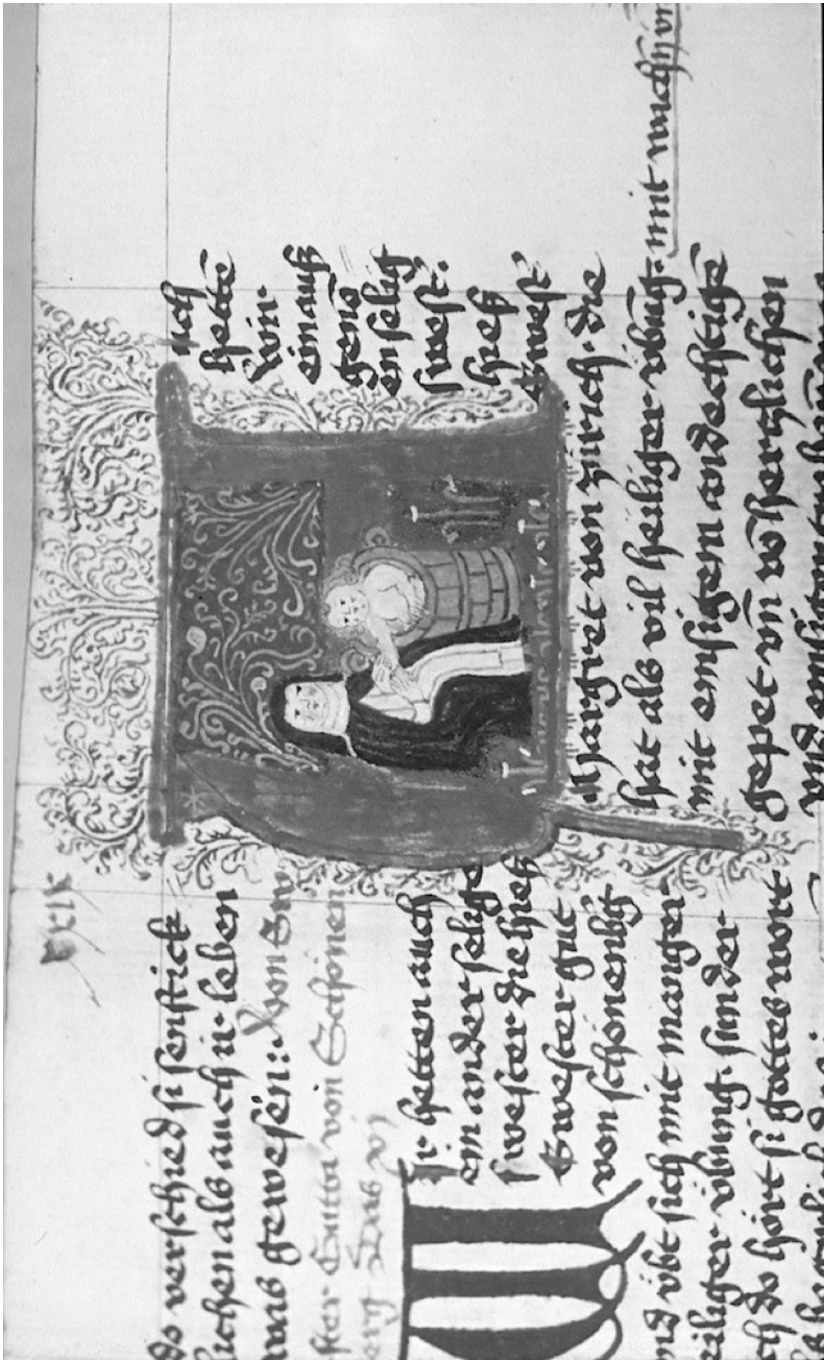 do verschied si senftick
lichen als auch ir leben
was gewesen: Von Sw
ster Gutti von Schönen
erg Das xv
Ir hetten auch
ein ander selige
swester die hieß
Swester gut
von schönenbg
nd übt sich mit manger
eiliger übung. sunder
ch do hört si gottes wort
uch
hettē
wir
ein auß
genō
en selig
swest.
hieß
Swest'
Margret von zürich. die
hat als vil heiliger übūg. mit
mit emsigem andechtigē
gepet vñ vō hertzlichen